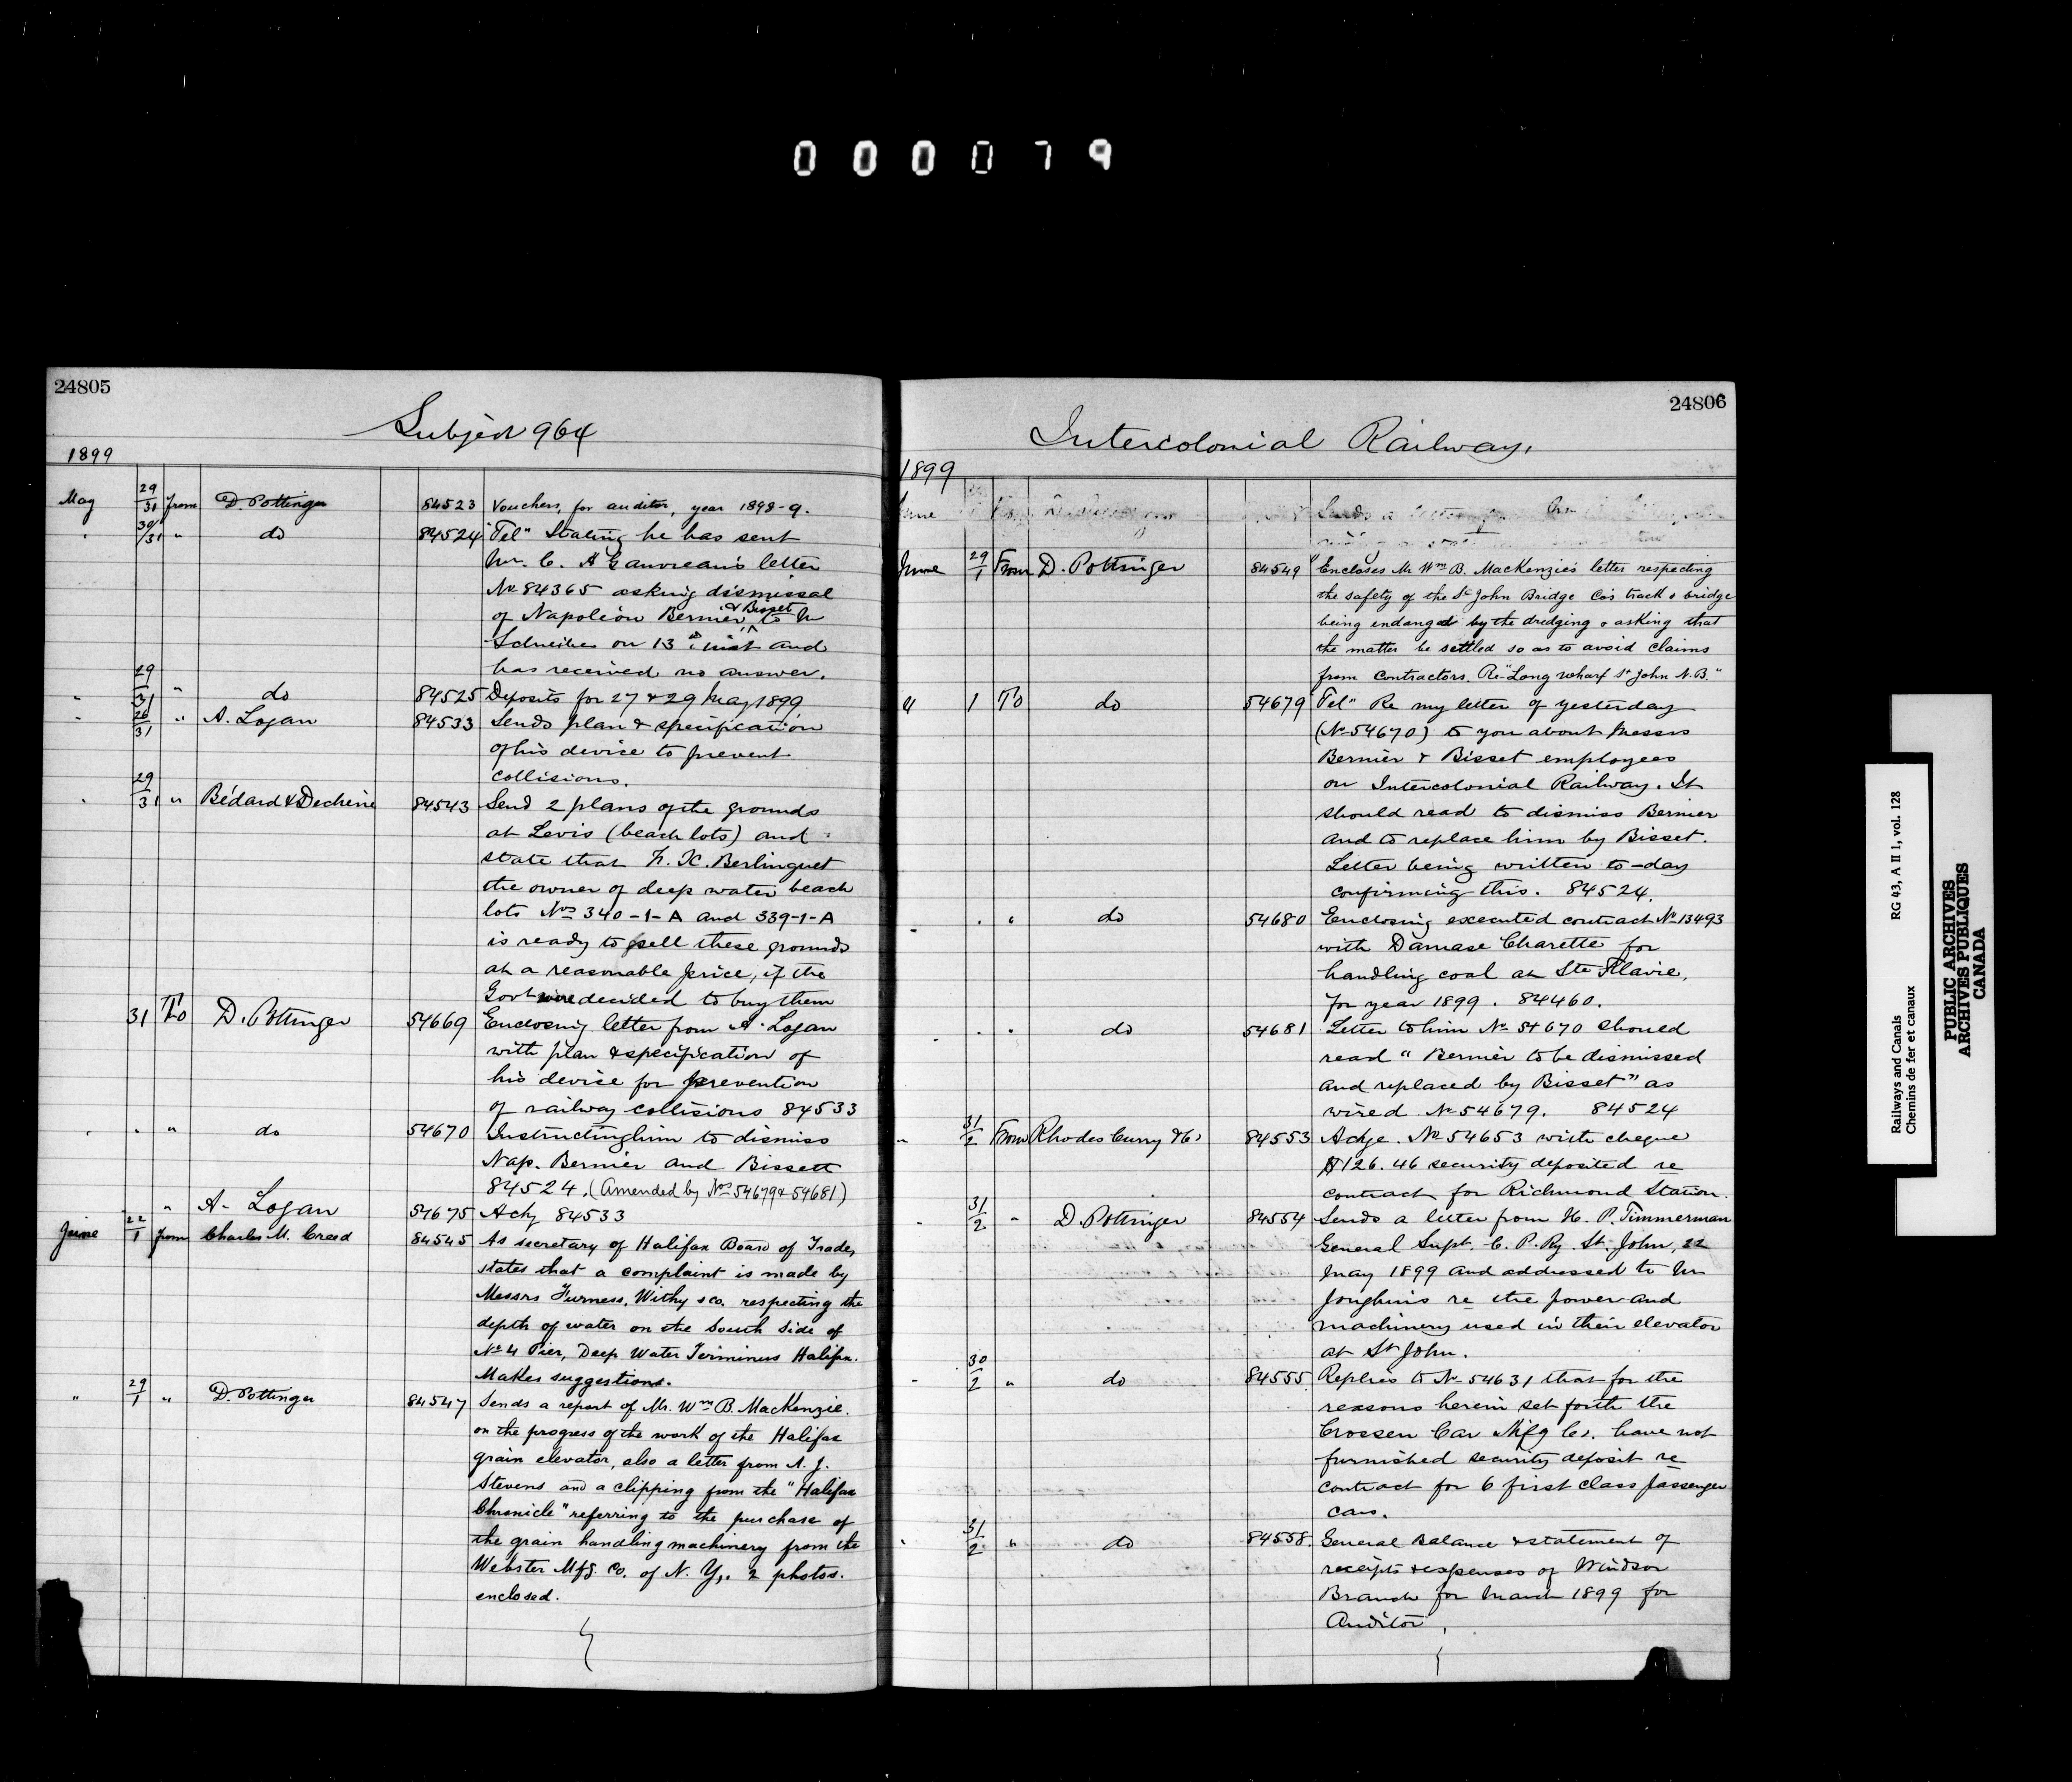 000079
24805
Subject 964
1899
May 29/31 from D. Pottinger 84523 Vouchers, for auditor, year 1898-9.
" 30/31 " do 84524 "Tel" Stating he has sent
Mr. C. A Gauvreau's letter
No 84365 asking dismissal
of Napoléon Bernier & Bisset to Mr
Schreiber on 13th inst and
has received no answer.
" 29/31 " do 84525 Deposits for 27 & 29 May 1899
" 26/31 " A. Logan 84533 Sends plan & specification
of his device to prevent
collisions.
" 29/31 " Bédard & Dechène 84543 Send 2 plans of the grounds
at Levis (beach lots) and
state that F. X. Berlinguet
the owner of deep water beach
lots Nos 340-1-A and 339-1-A
is ready to sell these grounds
at a reasonable price, if the
Govt were decided to buy them
31 To D. Pottinger 54669 Enclosing letter from A. Logan
with plan & specification of
his device for prevention
of railway collisions 84533
" " " do 54670 Instructing him to dismiss
Nap. Bernier and Bissett
84524. (Amended by Nos 54679 & 54681)
" A. Logan 54675 Ackg 84533
June 22/1 from Charles M. Creed 84545 As secretary of Halifax Board of Trade,
states that a complaint is made by
Messrs Furness, Withy & co. respecting the
depth of water on the South side of
No 4 Pier, Deep Water Terminus Halifax.
Makes suggestions.
" 29/1 " D. Pottinger 84547 Sends a report of Mr. Wm B. MacKenzie.
on the progress of the work of the Halifax
grain elevator, also a letter from A. J.
Stevens and a clipping from the "Halifax
Chronicle" referring to the purchase of
the grain handling machinery from the
Webster Mfg. Co. of N. Y,. 2 photos.
enclosed.
24806
Intercolonial Railway.
1899
June Sends a letter
June 29/1 From D. Pottinger 84549 Encloses Mr Wm B. MacKenzie's letter respecting
the safety of the St John Bridge Co's track & bridge
being endangd by the dredging & asking that
the matter be settled so as to avoid claims
from contractors. Re "Long wharf St John N.B."
" 1 To do 54679 "Tel" Re my letter of yesterday
(No 54670) to you about Messrs
Bernier & Bisset employees
on Intercolonial Railway. It
should read to dismiss Bernier
and to replace him by Bisset.
Letter being written to-day
confirming this. 84524.
" " " do 54680 Enclosing executed contract No 13493
with Damase Charette for
handling coal at Ste Flavie,
for year 1899. 84460.
" " " do 54681 Letter to him No 54670 should
read "Bernier to be dismissed
and replaced by Bisset" as
wired No 54679. 84524
" 31/2 From Rhodes Curry & Co 84553 Ackge. No 54653 with cheque
$126.46 security deposited re
contract for Richmond Station.
" 31/2 " D. Pottinger 84554 Sends a letter from H. P. Timmerman
General Supt. C. P. Ry. St. John, 22
May 1899 and addressed to Mr
Joughins re the power and
machinery used in their elevator
at St John.
" 30/2 " do 84555 Replies to No 54631 that for the
reasons herein set forth the
Crossen Car Mfg Co. have not
furnished security deposit re
contract for 6 first class passenger
cars.
" 31/2 " do 84558. General Balance & statement of
receipts & expenses of Windsor
Branch for March 1899 for
Auditor.
Railways and Canals RG 43, A II 1, vol. 128
Chemins de fer et canaux
PUBLIC ARCHIVES
ARCHIVES PUBLIQUES
CANADA